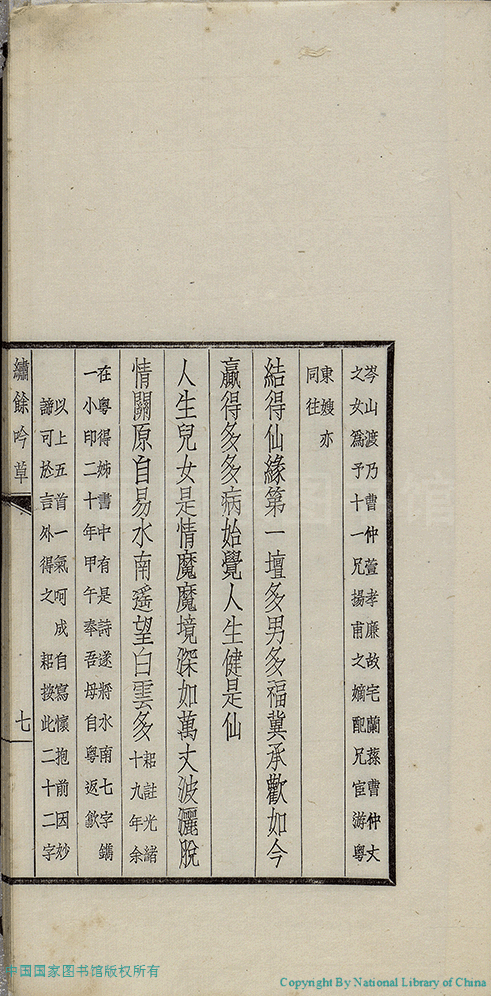 岑山渡乃曹仲萱孝廉故宅蘭蓀曹仲丈
之女為予十一兄揚甫之嫡配兄宦游粵
東嫂亦
同往
結得仙緣第一壇多男多福冀承歡如今
贏得多多病始覺人生健是仙
人生兒女是情魔魔境深如萬丈波灑脫
情關原自易水南遙望白雲多
軺註光緒
十九年余
在粵得姊書中有是詩遂將水南七字鐫
一小印二十年甲午奉吾母自粵返歙
以上五首一氣呵成自寫懷抱前因妙
諦可於言外得之 軺按此二十二字
繡餘吟草
七
中国国家图书馆版权所有
Copyright By National Library of China